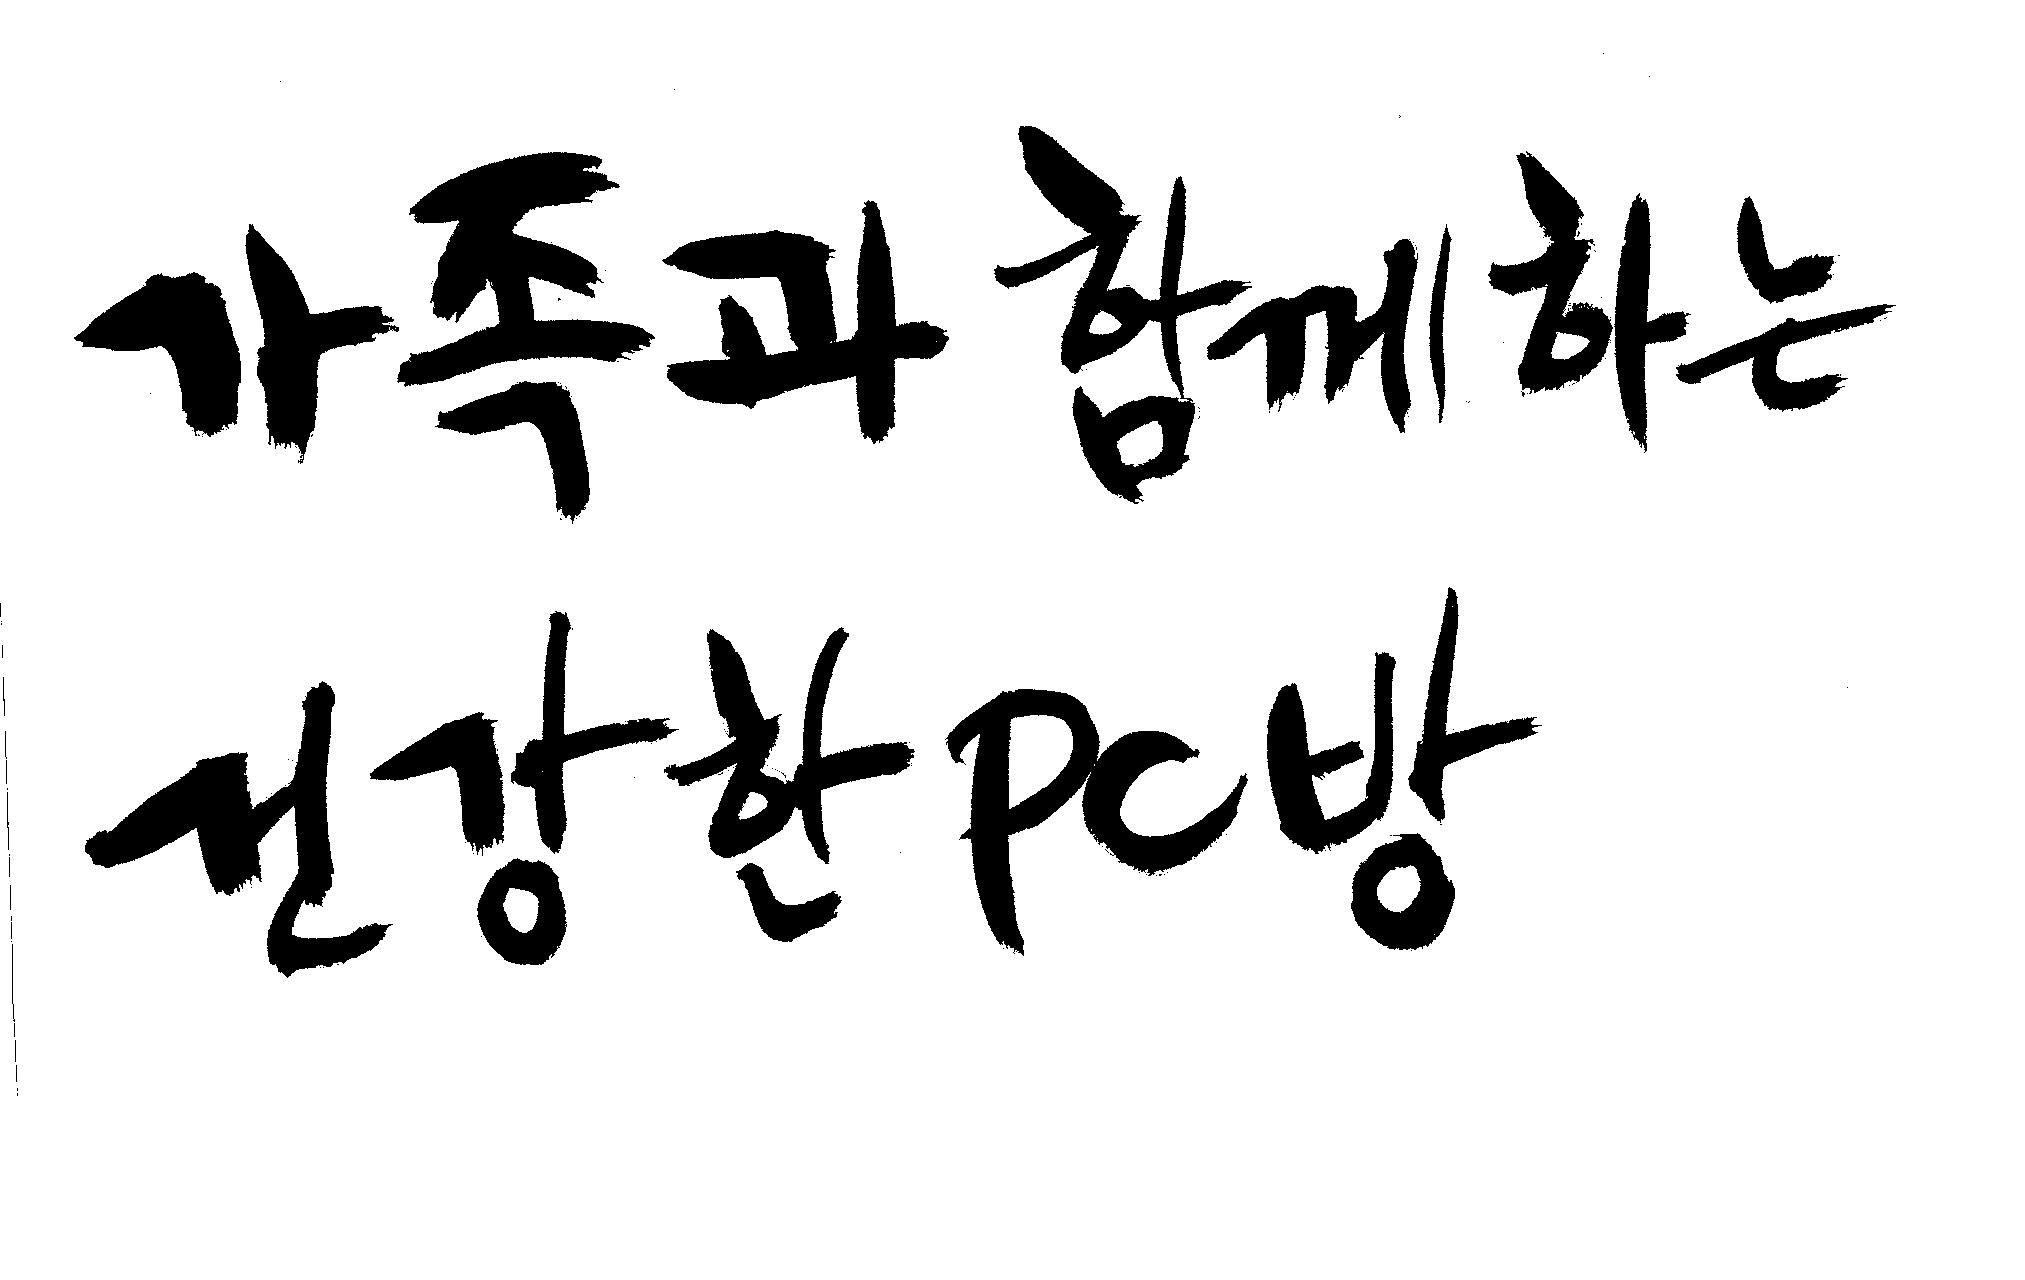 가족과 함께하는
건강한 PC방